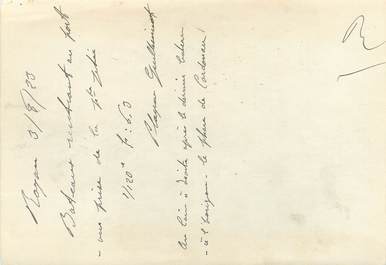 Royan 3/8/23
Bateaux rentrant au port
- vue prise de la pte jetée
1/120e F: 6.3
Plaque Guilleminot
Au loin à droite après le dernier bateau
- à l'horizon - le phare de Cordouan